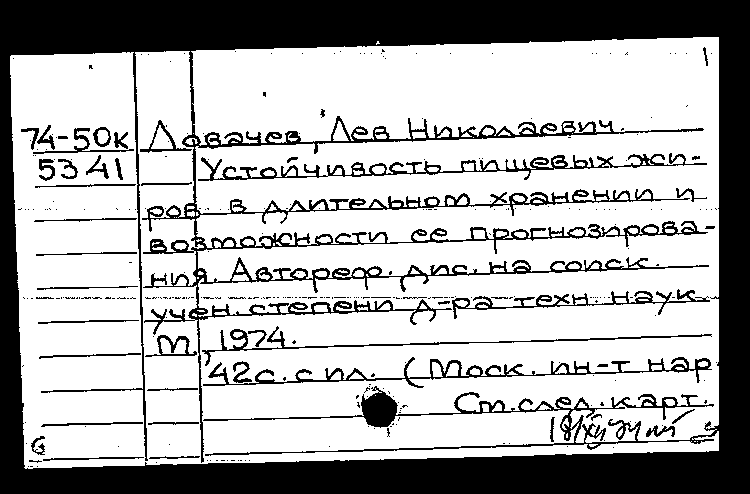 1
74-50к Ловачев, Лев Николаевич.
5341 Устойчивость пищевых жи-
ров в длительном хранении и
возможности ее прогнозирова-
ния. Автореф. дис. на соиск.
учен. степени д-ра техн. наук.
М., 1974.
42с. с ил. (Моск. ин-т нар.
См. след. карт.
G